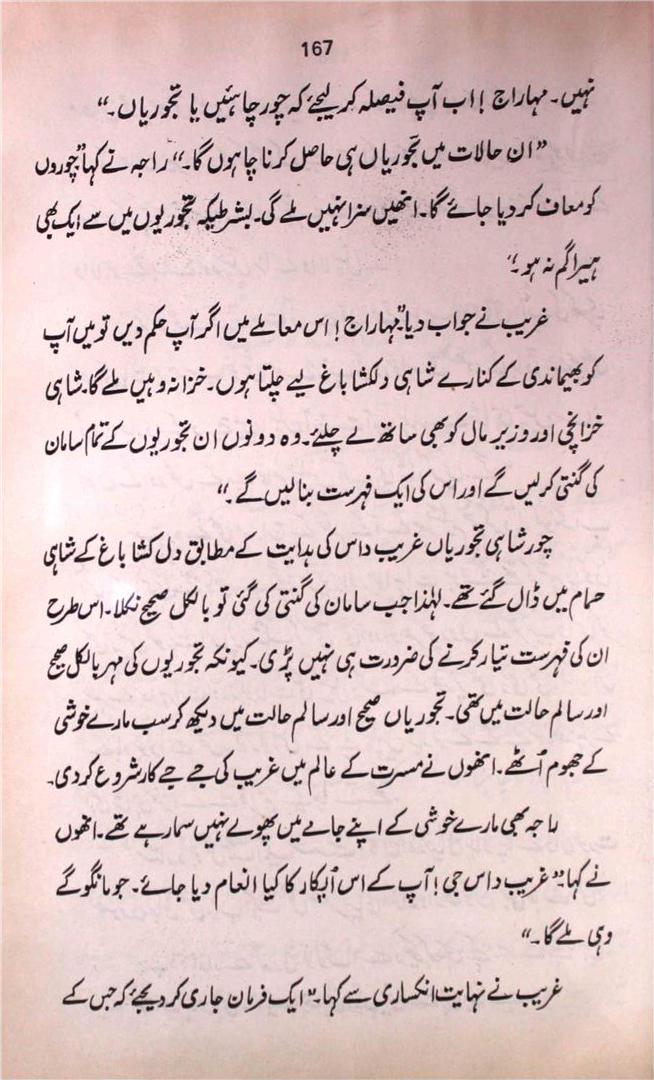 167
نہیں۔ مہاراج! اب آپ فیصلہ کر لیجئے کہ چور چاہئیں یا تجوریاں۔“
”ان حالات میں تجوریاں ہی حاصل کرنا چاہوں گا۔“ راجہ نے کہا ”چوروں
کو معاف کر دیا جائے گا۔ انھیں سزا نہیں ملے گی۔ بشرطیکہ تجوریوں میں سے ایک بھی
ہیرا گم نہ ہو۔“
غریب نے جواب دیا ”مہاراج! اس معاملے میں اگر آپ حکم دیں تو میں آپ
کو بھیماندی کے کنارے شاہی دلکشا باغ لیے چلتا ہوں۔ خزانہ وہیں ملے گا۔ شاہی
خزانچی اور وزیر مال کو بھی ساتھ لے چلئے۔ وہ دونوں ان تجوریوں کے تمام سامان
کی گنتی کر لیں گے اور اس کی ایک فہرست بنا لیں گے۔“
چور شاہی تجوریاں غریب داس کی ہدایت کے مطابق دل کشا باغ کے شاہی
حمام میں ڈال گئے تھے۔ لہٰذا جب سامان کی گنتی کی گئی تو بالکل صحیح نکلا۔ اس طرح
ان کی فہرست تیار کرنے کی ضرورت ہی نہیں پڑی۔ کیونکہ تجوریوں کی مہر بالکل صحیح
اور سالم حالت میں تھی۔ تجوریاں صحیح اور سالم حالت میں دیکھ کر سب مارے خوشی
کے جھوم اُٹھے۔ انھوں نے مسرت کے عالم میں غریب کی جے جے کار شروع کر دی۔
راجہ بھی مارے خوشی کے اپنے جامے میں پھولے نہیں سما رہے تھے۔ انھوں
نے کہا۔ ”غریب داس جی! آپ کے اس اُپکار کا کیا انعام دیا جائے۔ جو مانگو گے
وہی ملے گا۔“
غریب نے نہایت انکساری سے کہا۔ ”ایک فرمان جاری کر دیجئے کہ جس کے